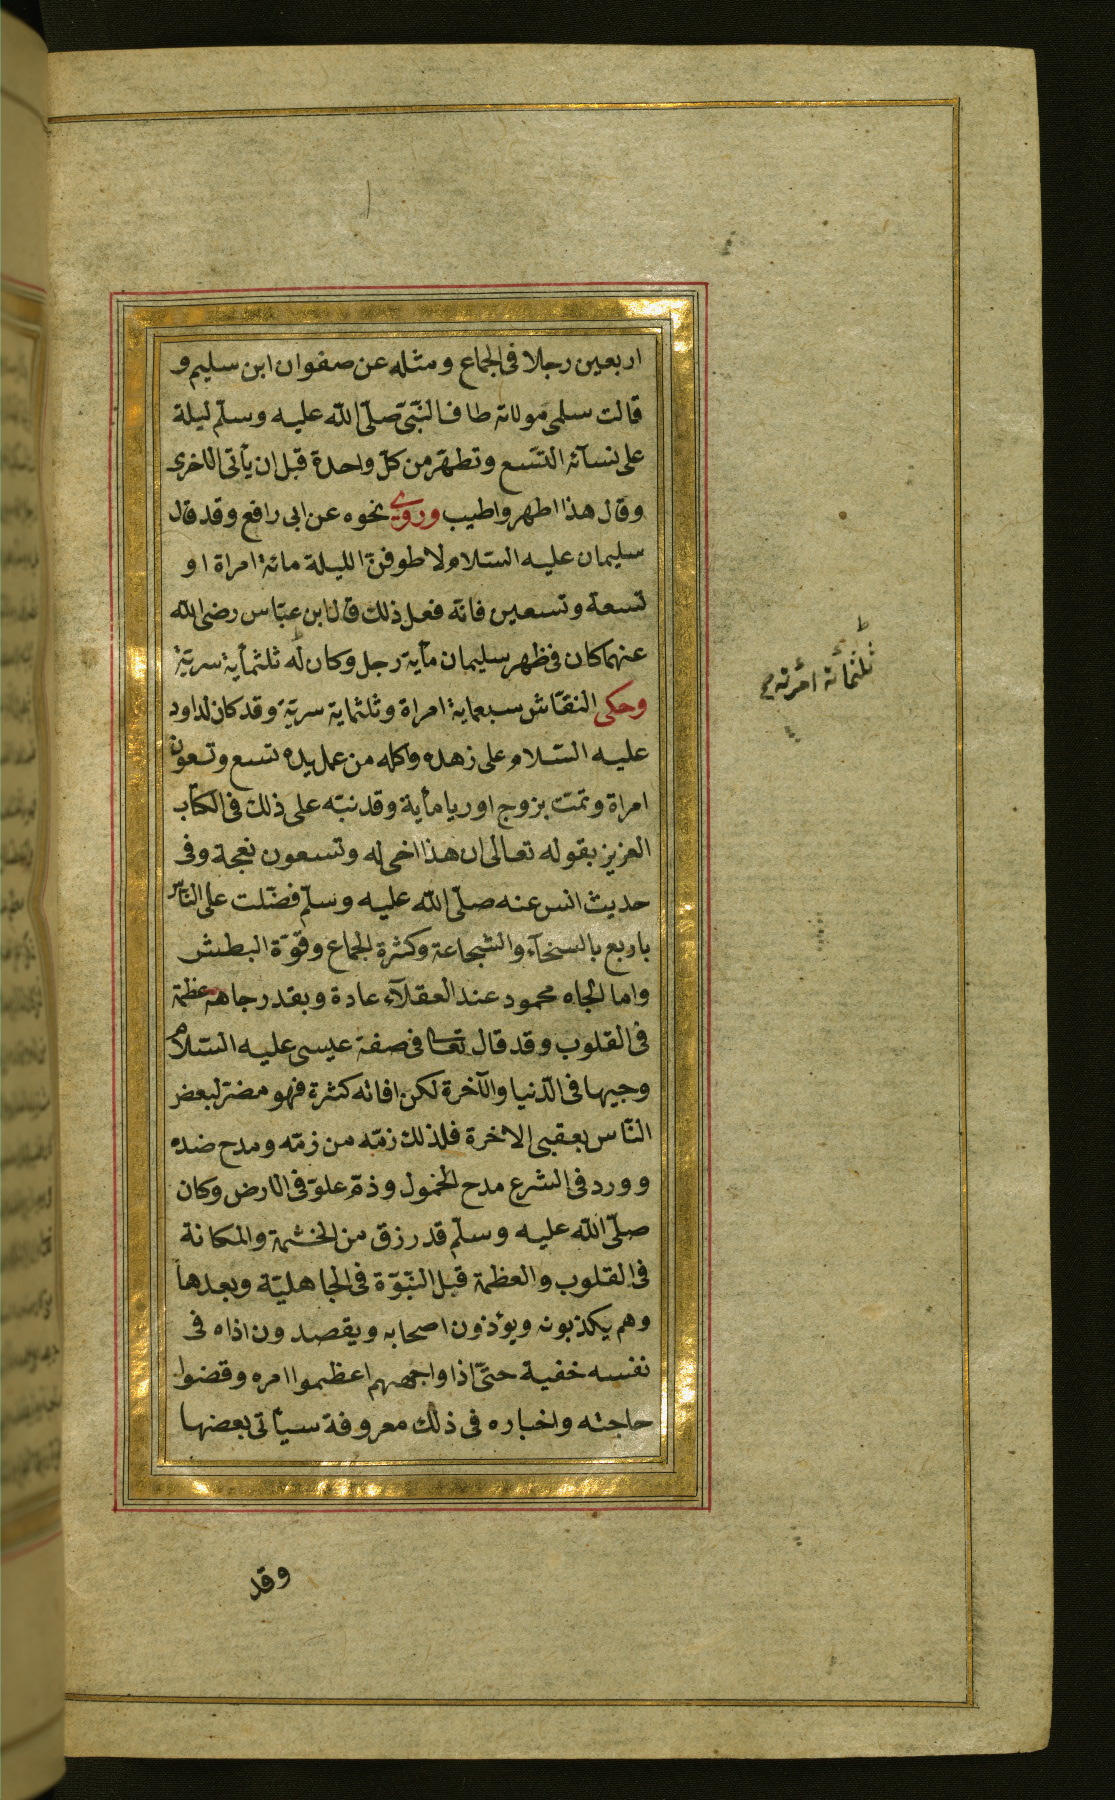 اربعين رجلا فى الجماع ومثله عن صفوان ابن سليم و
قالت سلمى مولاته طاف النّبىّ صلّى الله عليه وسلّم ليلة
على نسآئه التسّع وتطهّر من كلّ واحدة قبل ان يأتى الاخرى
وقال هذا اطهر واطيب وروى نحوه عن ابى رافع وقد قال
سليمان عليه السّلام لاطوفنّ الليلة مائة امراة او
تسعة وتسعين فانه فعل ذلك قال ابن عبّاس رضى الله
عنهما كان فى ظهر سليمان مأية رجل وكان له ثلثمأية سريّة
وحكى النقّاش سبعماية امراة وثلثماية سريّة وقد كان لداود
عليه السّلام على زهده واكله من عمل يده تسع وتسعون
امراة وتمّت بزوج اوريا مأية وقد نبّه على ذلك فى الكتاب
العزيز بقوله تعالى ان هذا اخى له وتسعون نعجة وفى
حديث انس عنه صلّى الله عليه وسلّم فضّلت على النّاس
باربع بالسخآء والشجاعة وكثرة الجماع وقوّة البطش
واما الجاه محمود عند العقلآء عادة وبقدر جاهه عظمة
فى القلوب وقد قال تعالى فى صفة عيسى عليه السّلام
وجيها فى الدّنيا والآخرة لكن افاته كثرة فهو مضرّ لبعض
النّاس بعقبى الاخرة فلذلك زمّه من زمّه ومدح ضده
وورد فى الشرع مدح الخمول وذمّ علوّ فى الارض وكان
صلّى الله عليه وسلّم قد رزق من الخشمة والمكانة
فى القلوب والعظمة قبل النّبوّة فى الجاهليّة وبعدها
وهم يكذبونه ويؤذون اصحابه ويقصدون اذاه فى
نفسه خفية حتىّ اذا واجههم اعظموا امره وقضوا
حاجته واخباره فى ذلك معروفة سيأتى بعضها
وقد
ثلثمائة امرئة